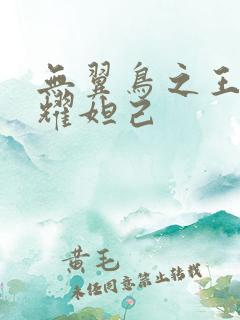 無翼鳥之王
耀妲己
黄毛
未经同意禁止转载